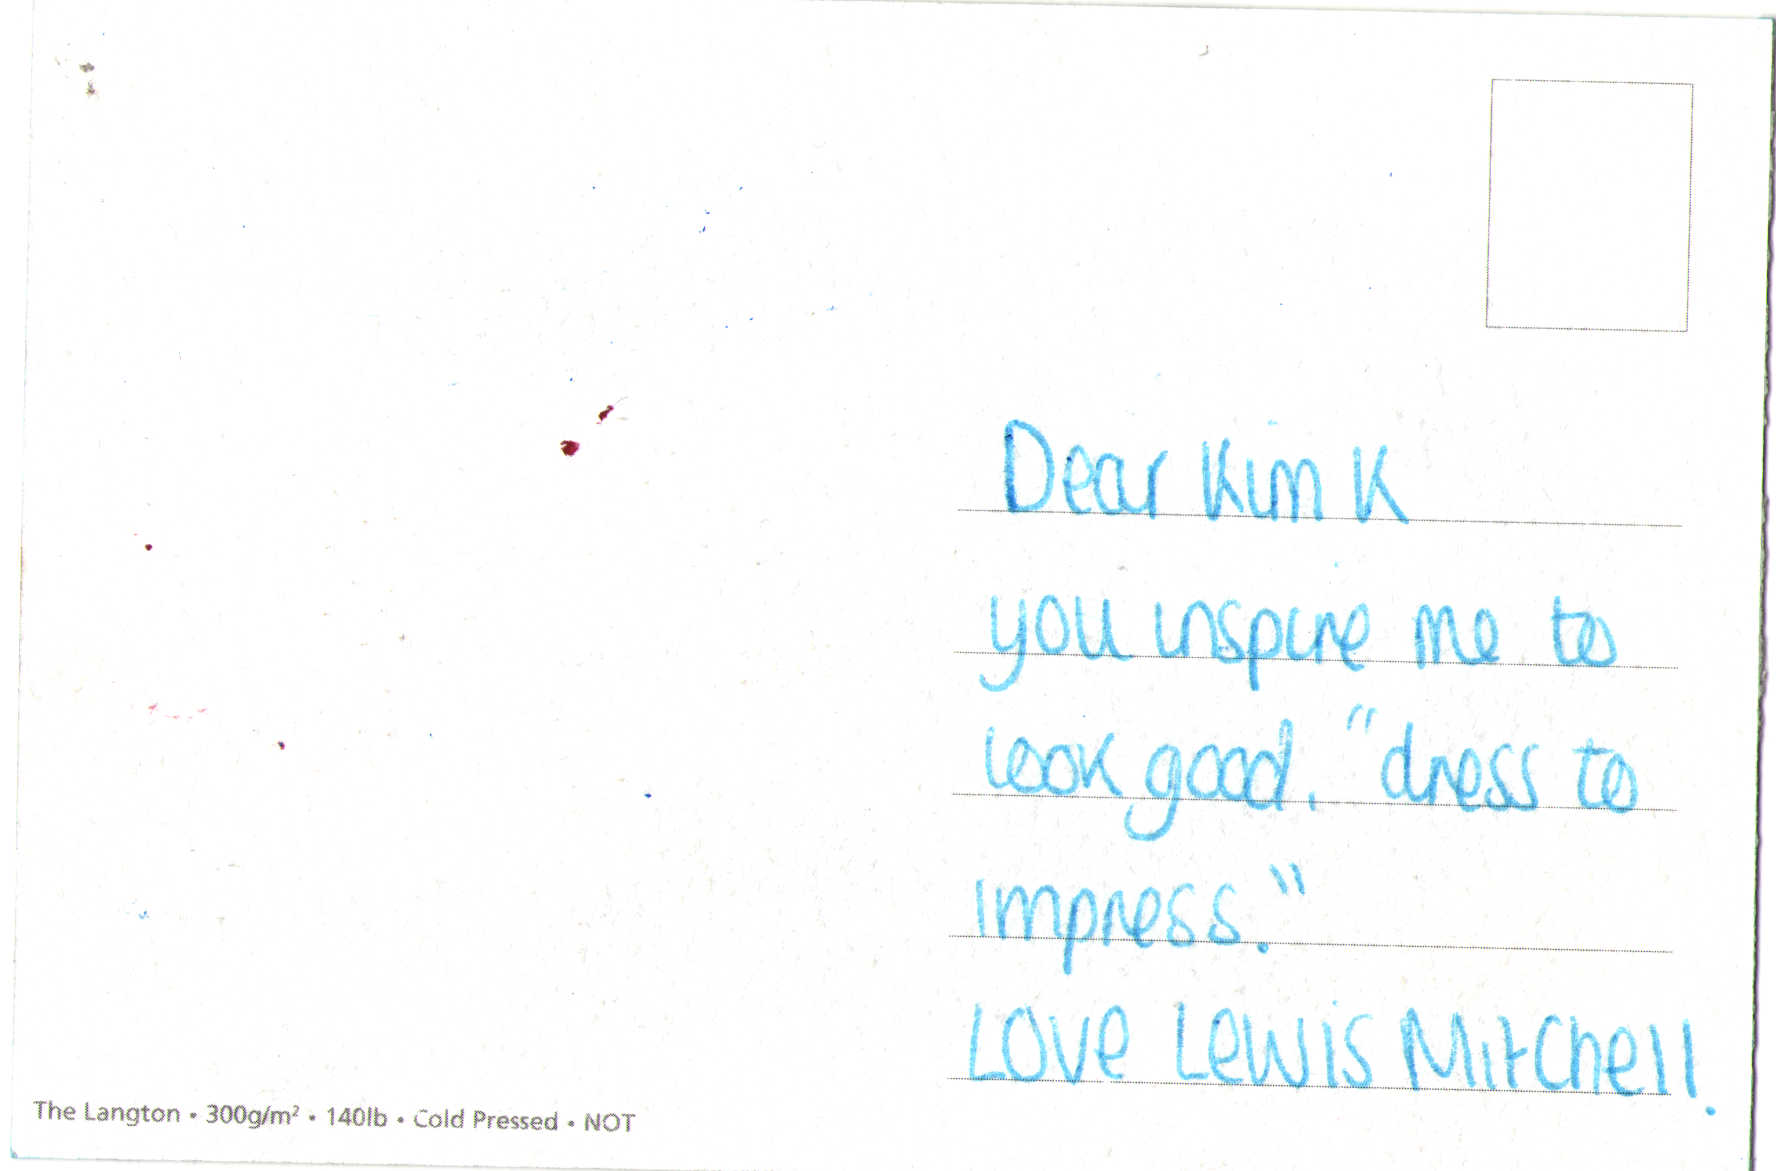 Dear Kim K
you inspire me to
look good. "dress to
impress."
Love Lewis Mitchell.
The Langton • 300g/m² • 140lb • Cold Pressed • NOT